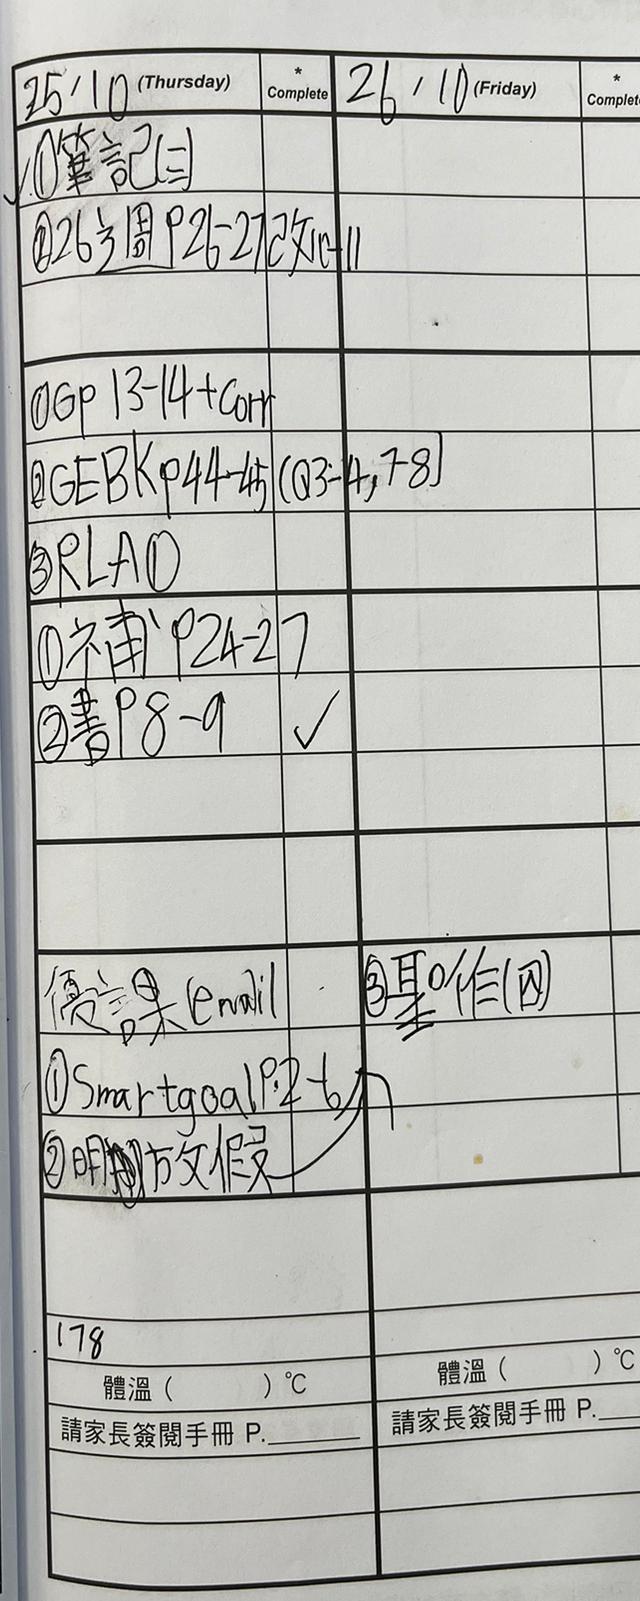 25/10 (Thursday) * Complete 26/10 (Friday) * Complete
✓①筆記(三)
②26 周P26-27改10-11
①GP 13-14+Corr
②GEBK P44-45 (Q3-4,7-8)
③RLAO
①補P24-27
②書P8-9 ✓
優課(email ③聖作(四)
①Smartgoal P.2-6
②明 放假
178
體溫 ( ) °C 體溫 ( ) °C
請家長簽閱手冊 P.______ 請家長簽閱手冊 P.__